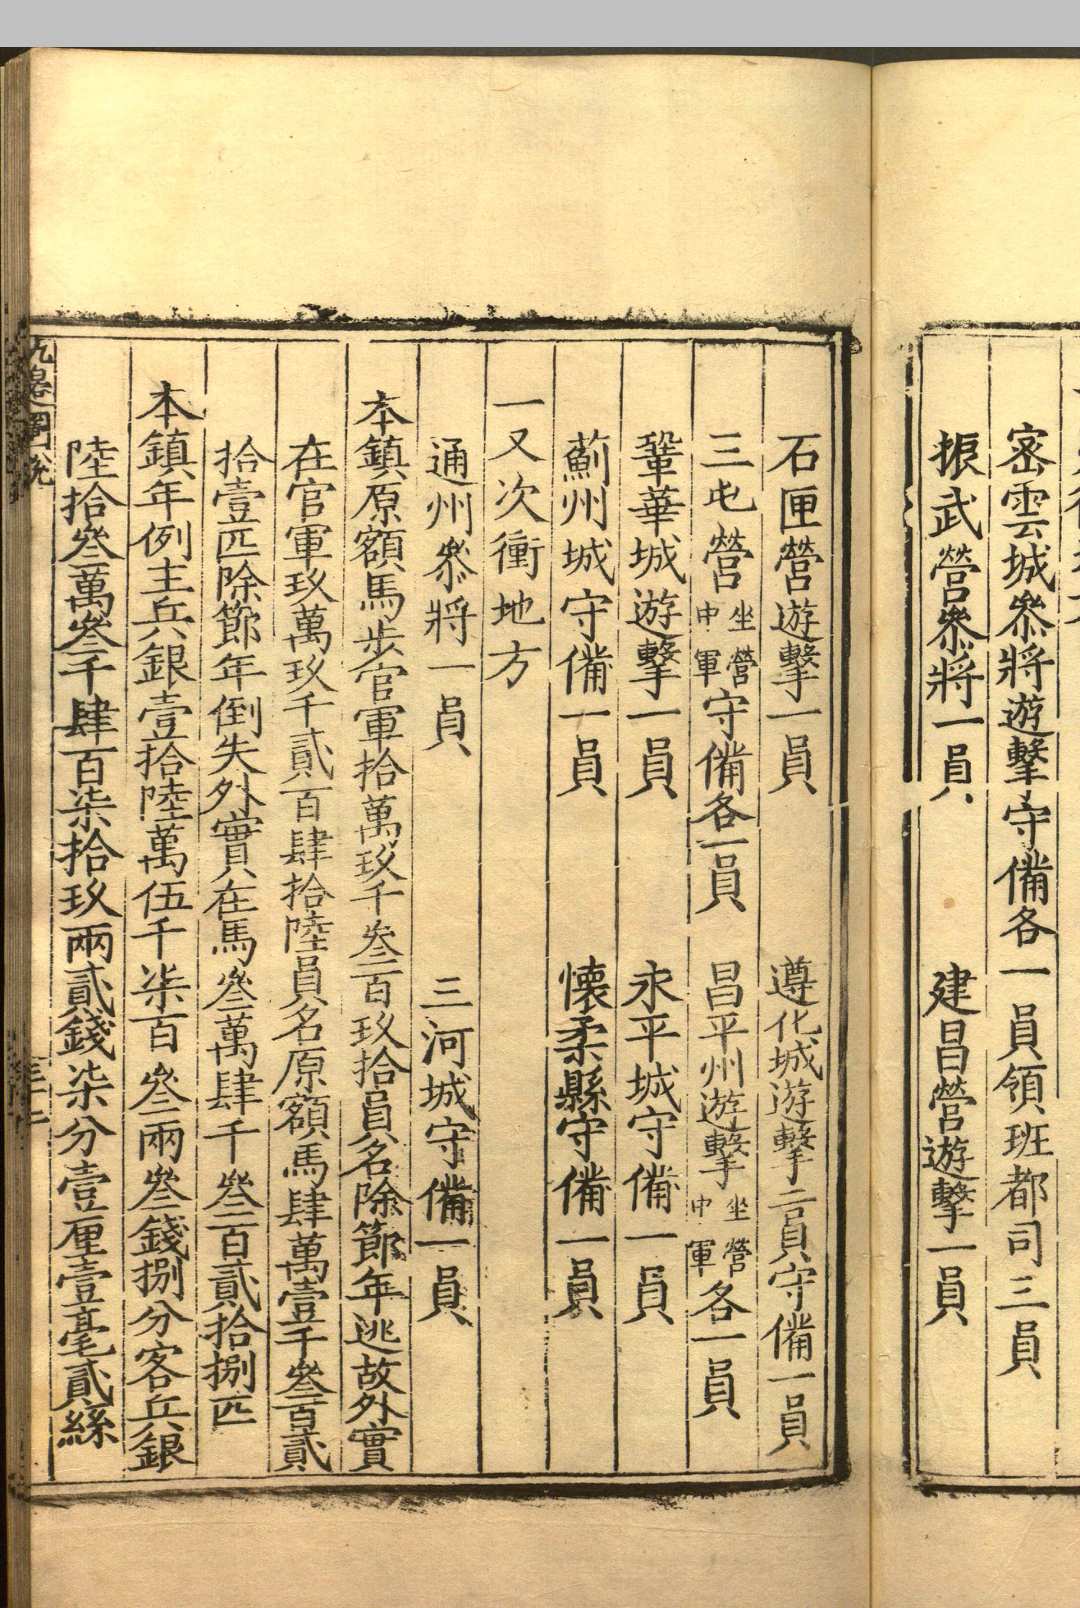 密雲城叅將遊擊守備各一員領班都司三員
振武營叅將一員　建昌營遊擊一員
石匣營遊擊一員　遵化城遊擊二員守備一員
三屯營坐營中軍守備各一員　昌平州遊擊坐營中軍各一員
鞏華城遊擊一員　永平城守備一員
薊州城守備一員　懷柔縣守備一員
一又次衝地方
通州叅將一員　三河城守備一員
本鎮原額馬步官軍拾萬玖千叁百玖拾員名除節年逃故外實
在官軍玖萬玖千貳百肆拾陸員名原額馬肆萬壹千叁百貳
拾壹匹除節年倒失外實在馬叁萬肆千叁百貳拾捌匹
本鎮年例主兵銀壹拾陸萬伍千柒百叁兩叁錢捌分客兵銀
陸拾叁萬叁千肆百柒拾玖兩貳錢柒分壹厘壹毫貳絲
九邊圖說